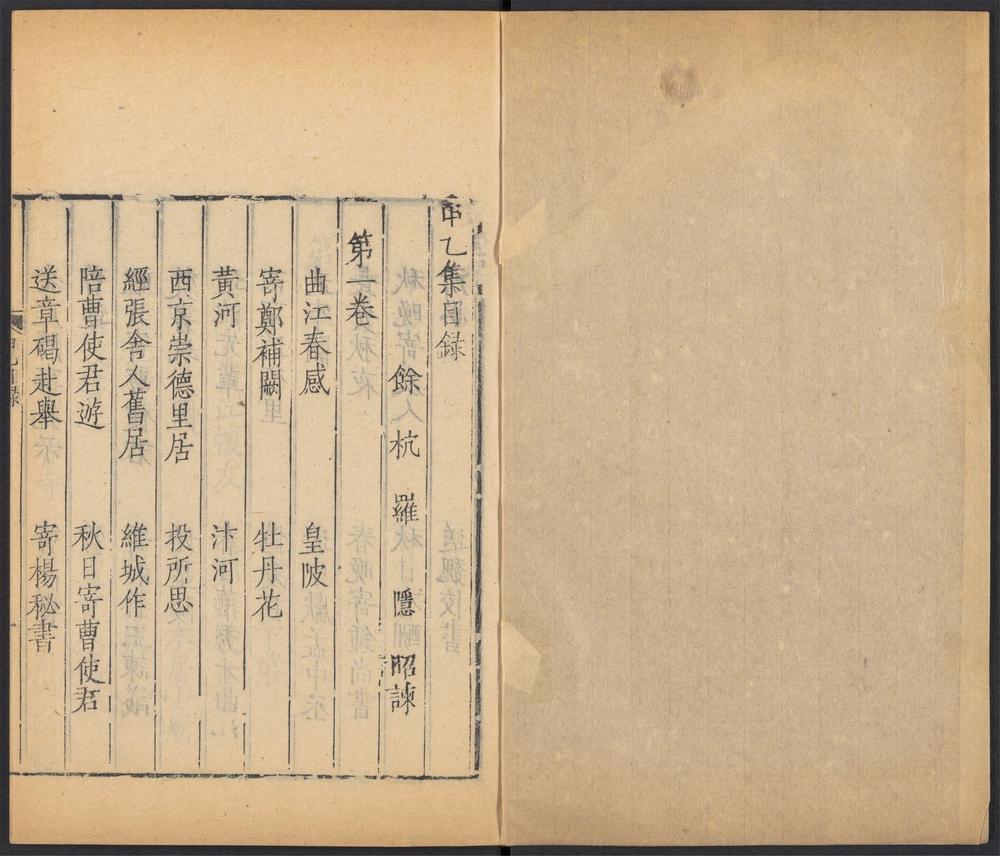 甲乙集目錄
餘杭 羅隱 昭諫
第一卷
曲江春感 皇陂
寄鄭補闕 牡丹花
黃河 汴河
西京崇德里居 投所思
經張舍人舊居 維城作
陪曹使君遊 秋日寄曹使君
送章碣赴舉 寄楊秘書